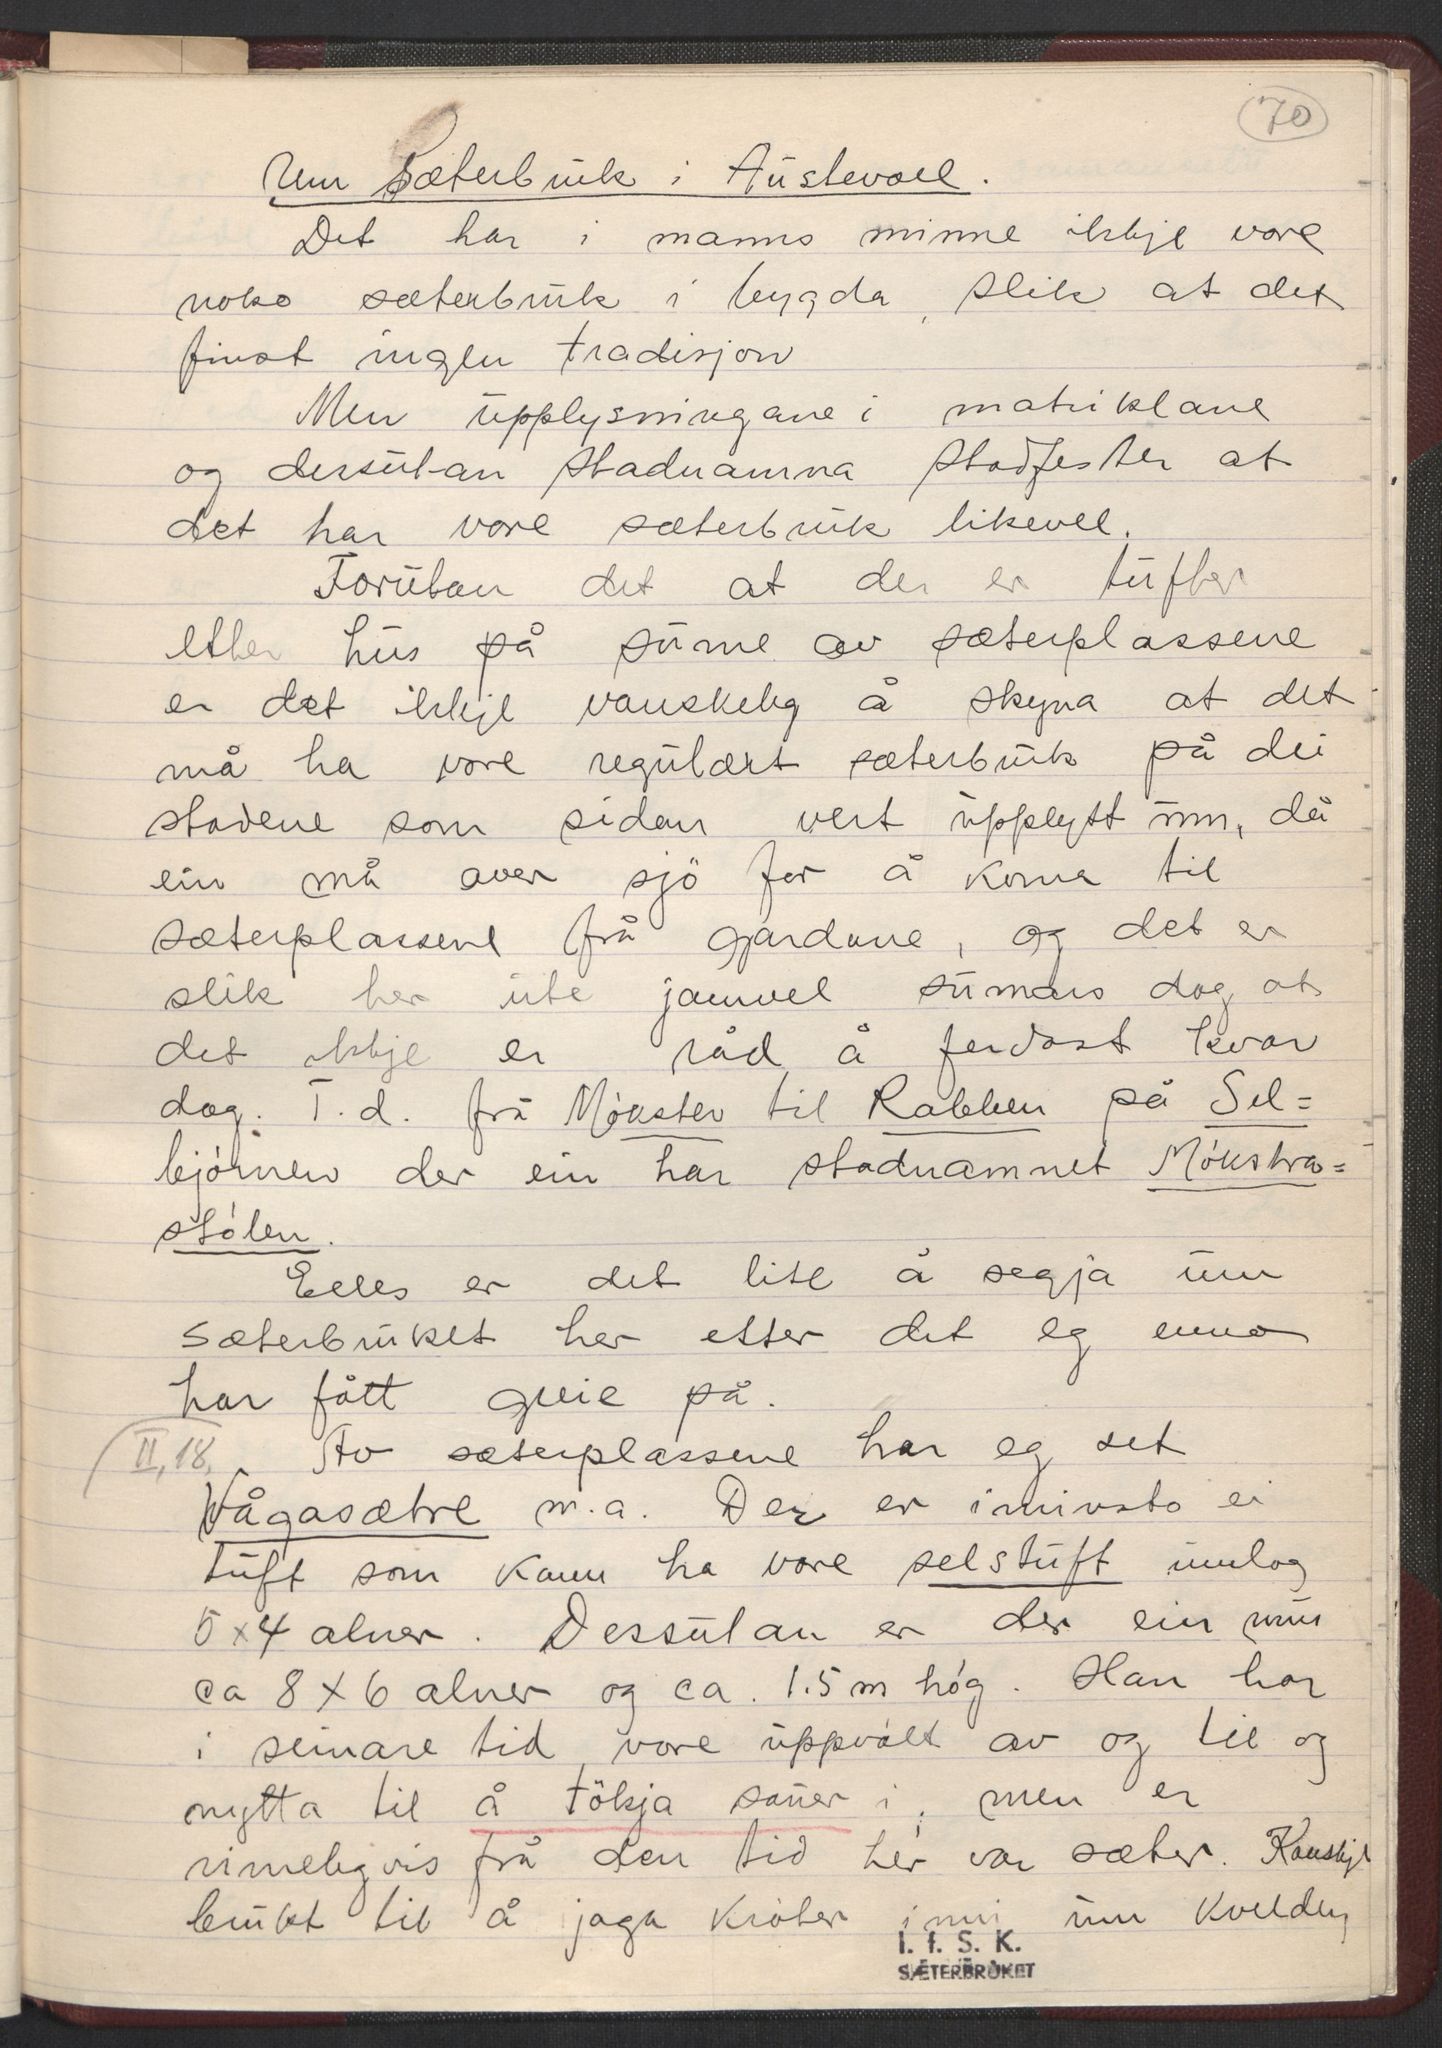 70
Um Sæterbruk i Austevoll.
Det har i manns minne ikkje vore
noko sæterbruk i bygda, slik at det
finst ingen tradisjon
Men upplysningane i matriklane
og dessutan stadnamna stadfester at
det har vore sæterbruk likevel.
Forutan det at der er tufter
etter hus på sume av sæterplassene
er det ikkje vanskeleg å skyna at det
må ha vore regulært sæterbruk på dei
stadene som sidan vert upplyst um, då
ein må over sjö for å koma til
sæterplassene frå gardane, og det er
slik her ute jamvel sumars dag at
det ikkje er råd å ferdast kvar
dag. T.d. frå Mókster til Rabben på Sel=
bjórnen der ein har stadnamnet Mókstra=
stólen.
Elles er det lite å segja um
sæterbruket her etter det eg enno
har fått greie på.
II, 18. Av sæterplassene har eg set
Vågasætre m.a. Der er iminsto ei
tuft som kann ha vore selstuft umlag
5 x 4 alner. Dessutan er der ein mur
ca 8 x 6 alner og ca. 1.5 m hóg. Han har
i seinare tid vore uppvólt av og til og
nytta til å tökja sauer i, men er
rimelegvis frå den tid her var sæter. Kanskje
brukt til å jaga króter inni um kvelden
I. f. S. K.
SÆTERBRUKET